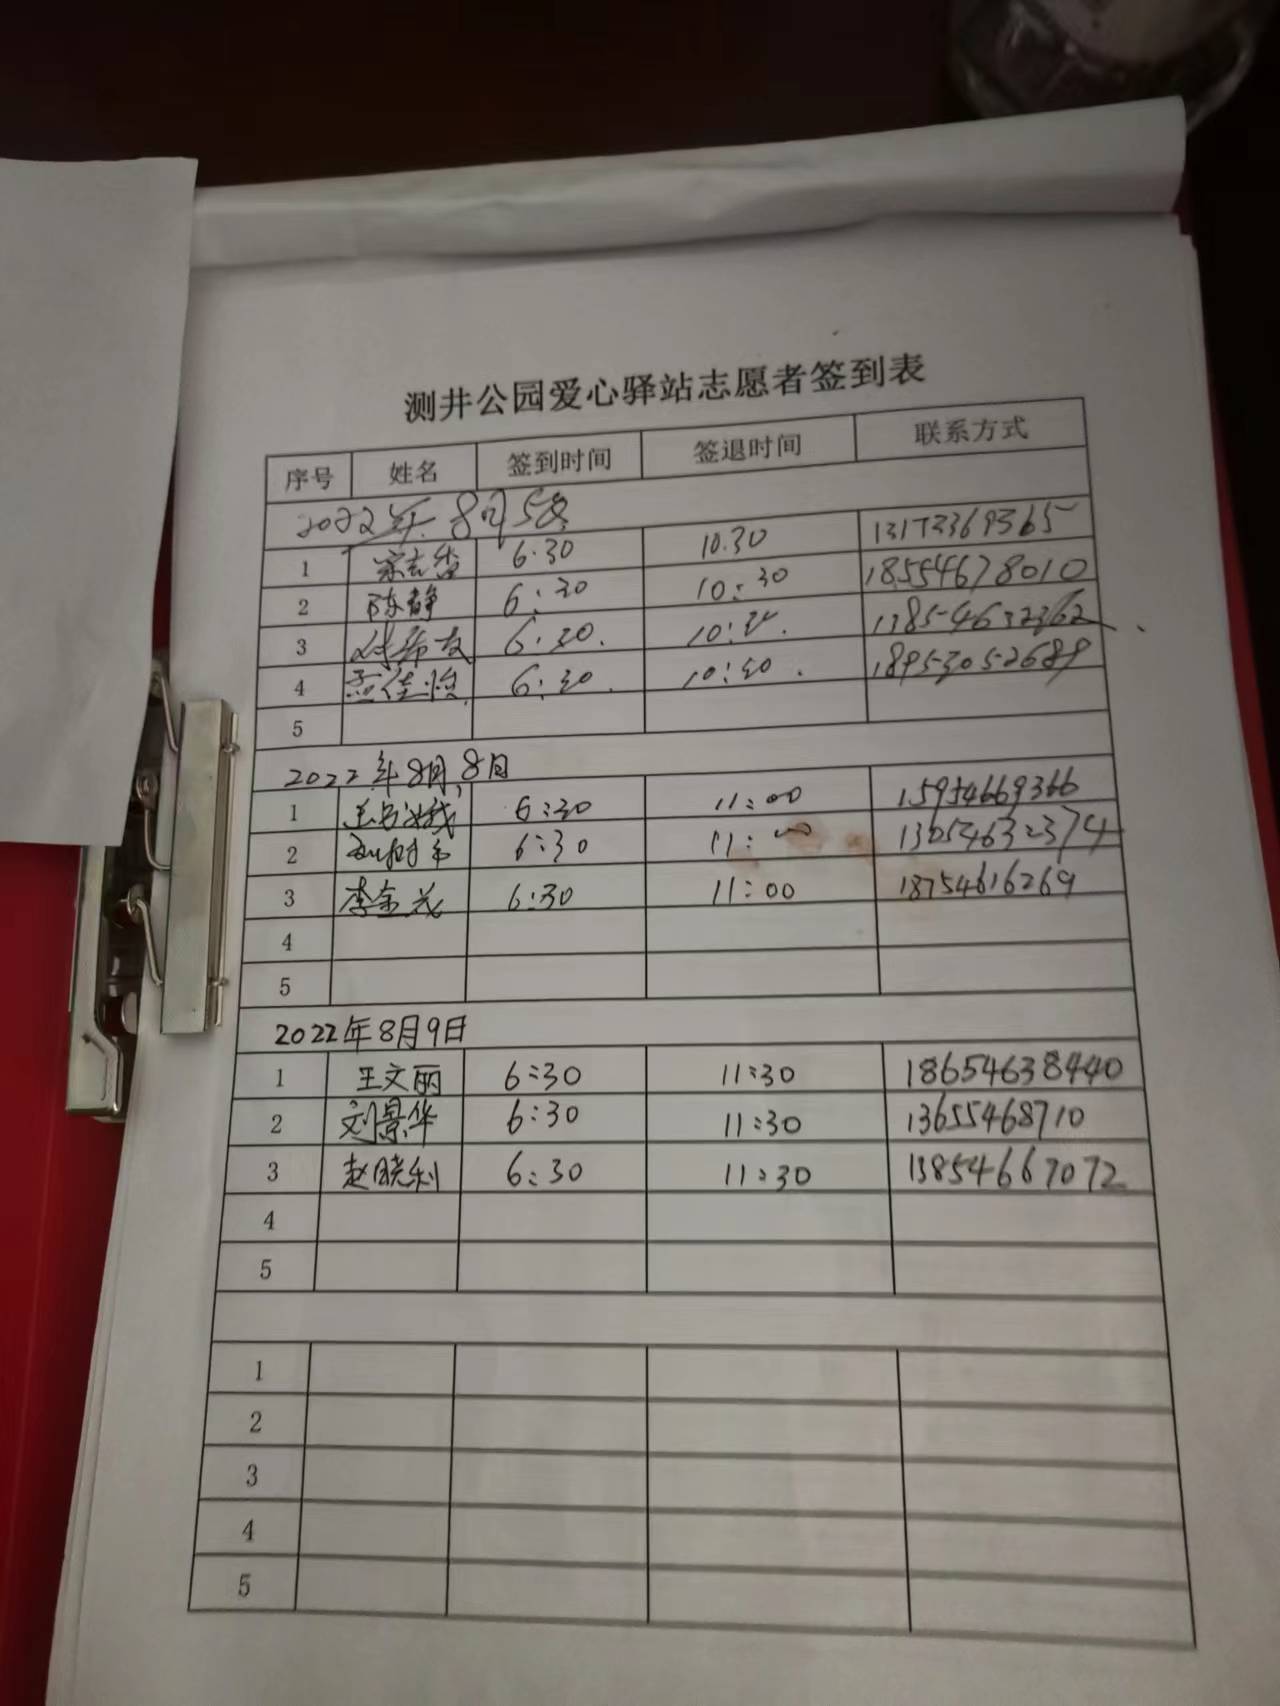 测井公园爱心驿站志愿者签到表
序号 姓名 签到时间 签退时间 联系方式
2022年8月5日
1 6:30 10.30 13173369365
2 陈静 6:30 10:30 18554678010
3 付希友 6:30. 10:30. 13854632362
4 孟佳怡 6:30. 10:30. 18953052689
5
2022年8月8日
1 6:30 11:00 15954669366
2 6:30 11:00 13054632374
3 李金茂 6:30 11:00 18754616269
4
5
2022年8月9日
1 王文丽 6:30 11:30 18654638440
2 刘景华 6:30 11:30 13655468710
3 赵晓利 6:30 11:30 13854667072
4
5
1
2
3
4
5